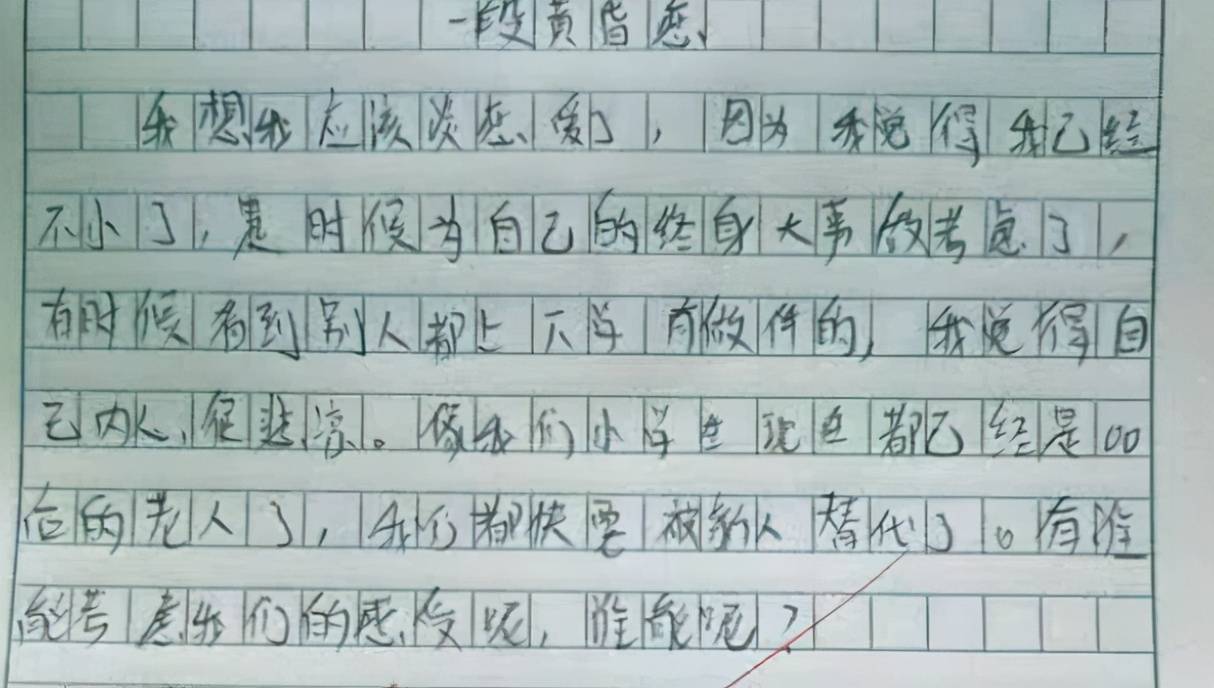 一段黄昏恋
我想我应该谈恋爱了，因为我觉得我己经
不小了，是时候为自己的终身大事做考虑了，
有时候看到别人都上大学有做伴的，我觉得自
己内心很悲凉。像我们小学生现在都己经是00
后的老人了，我们都快要被新人替代了。有谁
能考虑我们的感受呢，谁能呢？